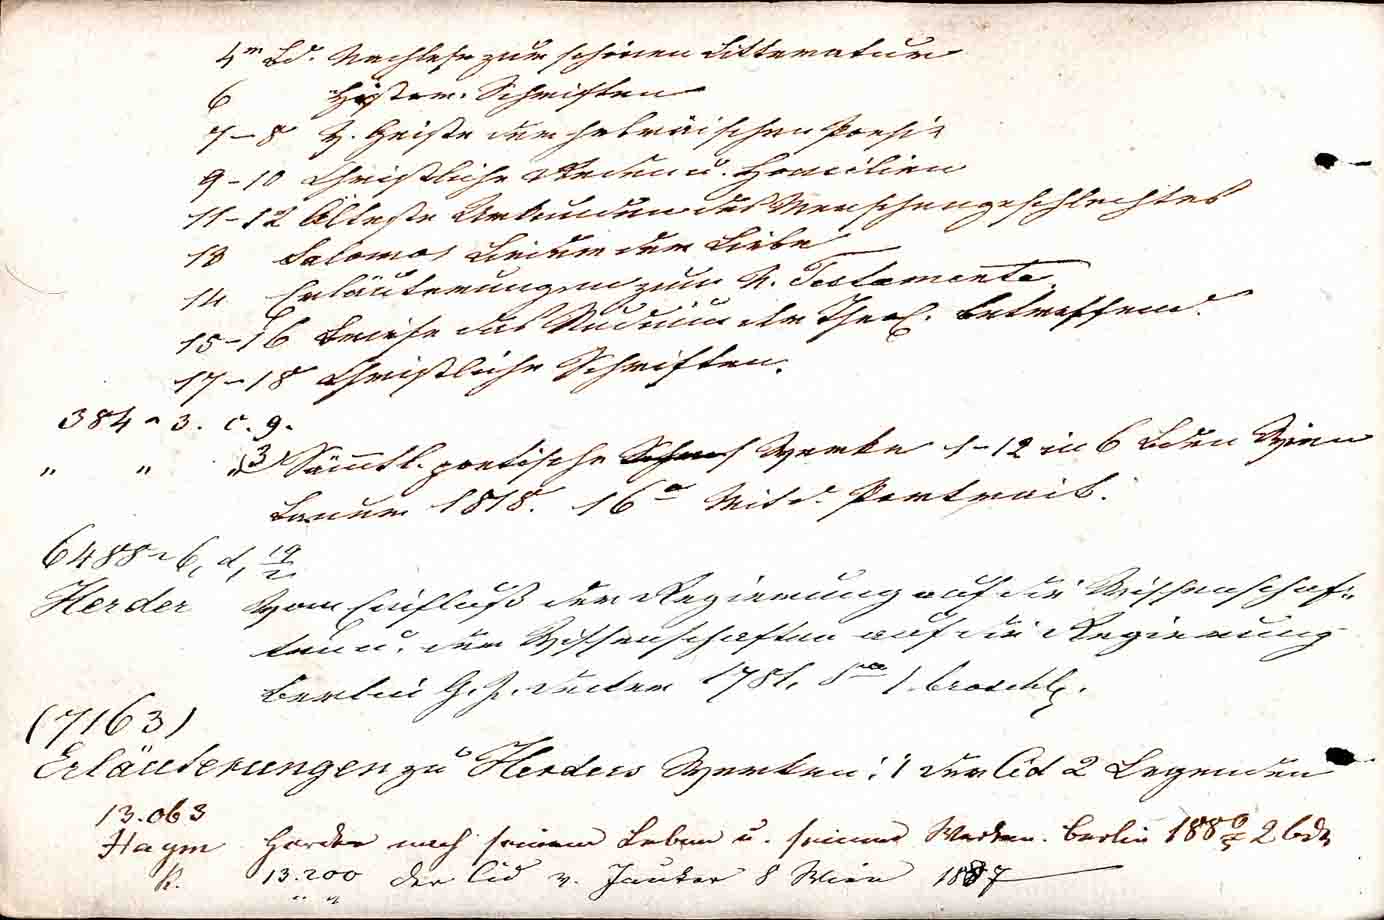 4r Bd. Nachlese zur schönen Litteratur
6 Histor. Schriften
7-8 V. Geiste der hebräischen Poesie
9-10 Christliche Reden u. Homilien
11-12 Älteste Urkunden des Menschengeschlechtes
13 Salomos Lieder der Liebe
14 Erläuterungen zum N. Testamente
15-16 Briefe das Studium der Theol. betreffend.
17-18 Christliche Schriften.
384 - 3. c. 9.
" " " 3 Sämtl. poetische Werke 1-12 in 6 Bden Wien
Bauer 1818. 16° Mit d. Portrait.
6488 - 6, d, 19/2
Herder Vom Einfluß der Regierung auf die Wissenschaf-
ten u. der Wissenschaften auf die Regierung
Berlin G. J. Decker 1781. 8vo 1 brosch.
(7163)
Erläuterungen zu Herders Werken: 1 der Cid 2 Legenden
13.063
Haym Herder nach seinem Leben u. seinen Werken. Berlin 1880/5 2 bde
K. 13.200 der Cid v. Junker 8 Wien 1887
" "